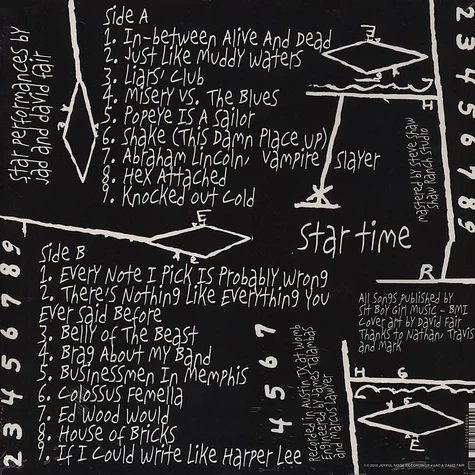 Star performances by
Jad and David Fair
Side A
1. In-between Alive And Dead
2. Just Like Muddy Waters
3. Liars' Club
4. Misery Vs. The Blues
5. Popeye Is A Sailor
6. Shake (This Damn Place Up)
7. Abraham Lincoln, Vampire Slayer
8. Hex Attached
9. Knocked out Cold
E
H
2 3 4 5 6 7 8 9
mastered by Steve Shaw
Shaw Ranch Studio
R
Star time
E
Side B
1. Every Note I Pick Is Probably Wrong
2. There's Nothing Like Everything You
Ever Said Before
3. Belly of The Beast
4. Brag About My Band
5. Businessmen In Memphis
6. Colossus Femella
7. Ed Wood Would
8. House of Bricks
9. If I Could Write Like Harper Lee
2 3 4 5 6 7 8 9
4 5 6 7
Recorded in Austin TX at Womb
Engineered by James Talambas
and Marcus Lawyer
All Songs published by
Sit Boy Girl Music - BMI
Cover art by David Fair
Thanks to Nathan, Travis
and Mark
H G
E